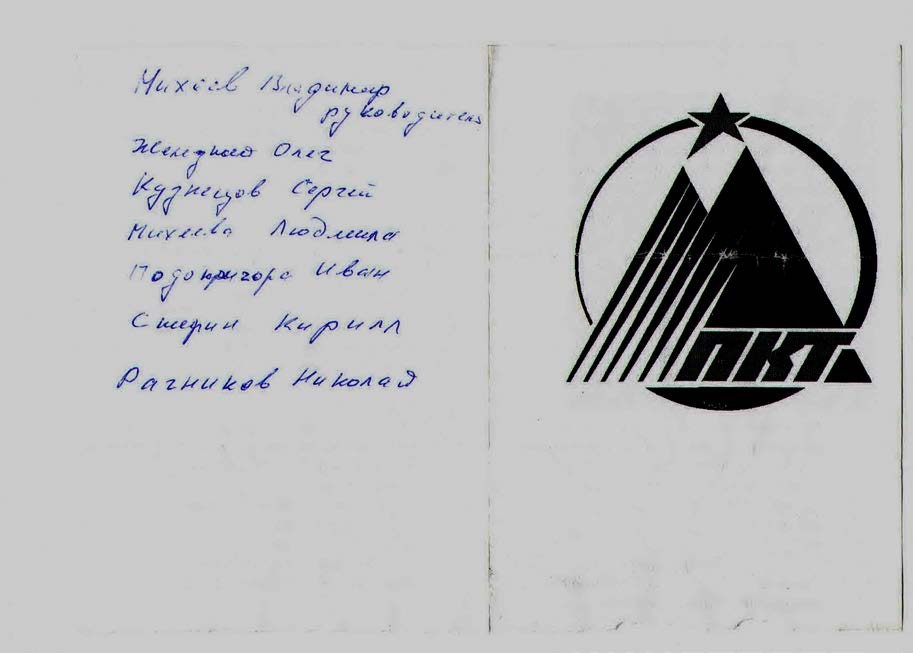 Михеев Владимир
руководитель
Олег
Кузнецов Сергей
Михеева Людмила
Подопригора Иван
Кирилл
Николай
ПКТ